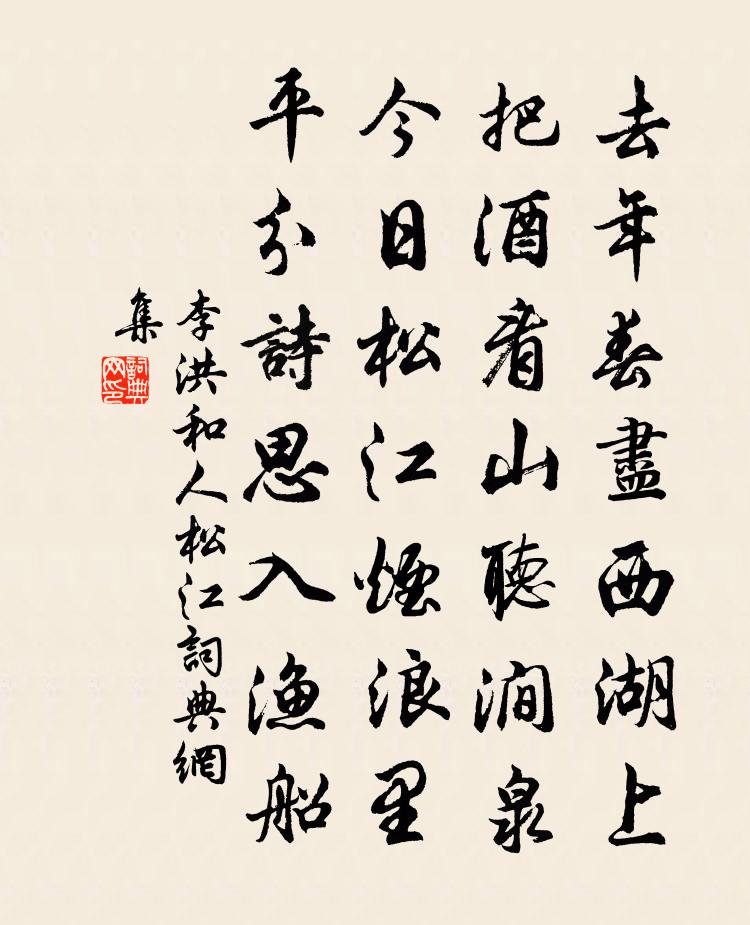 去年春盡西湖上
把酒看山聽澗泉
今日松江煙浪里
平分詩思入漁船
李洪和人松江詞典網
集
詞典
网印